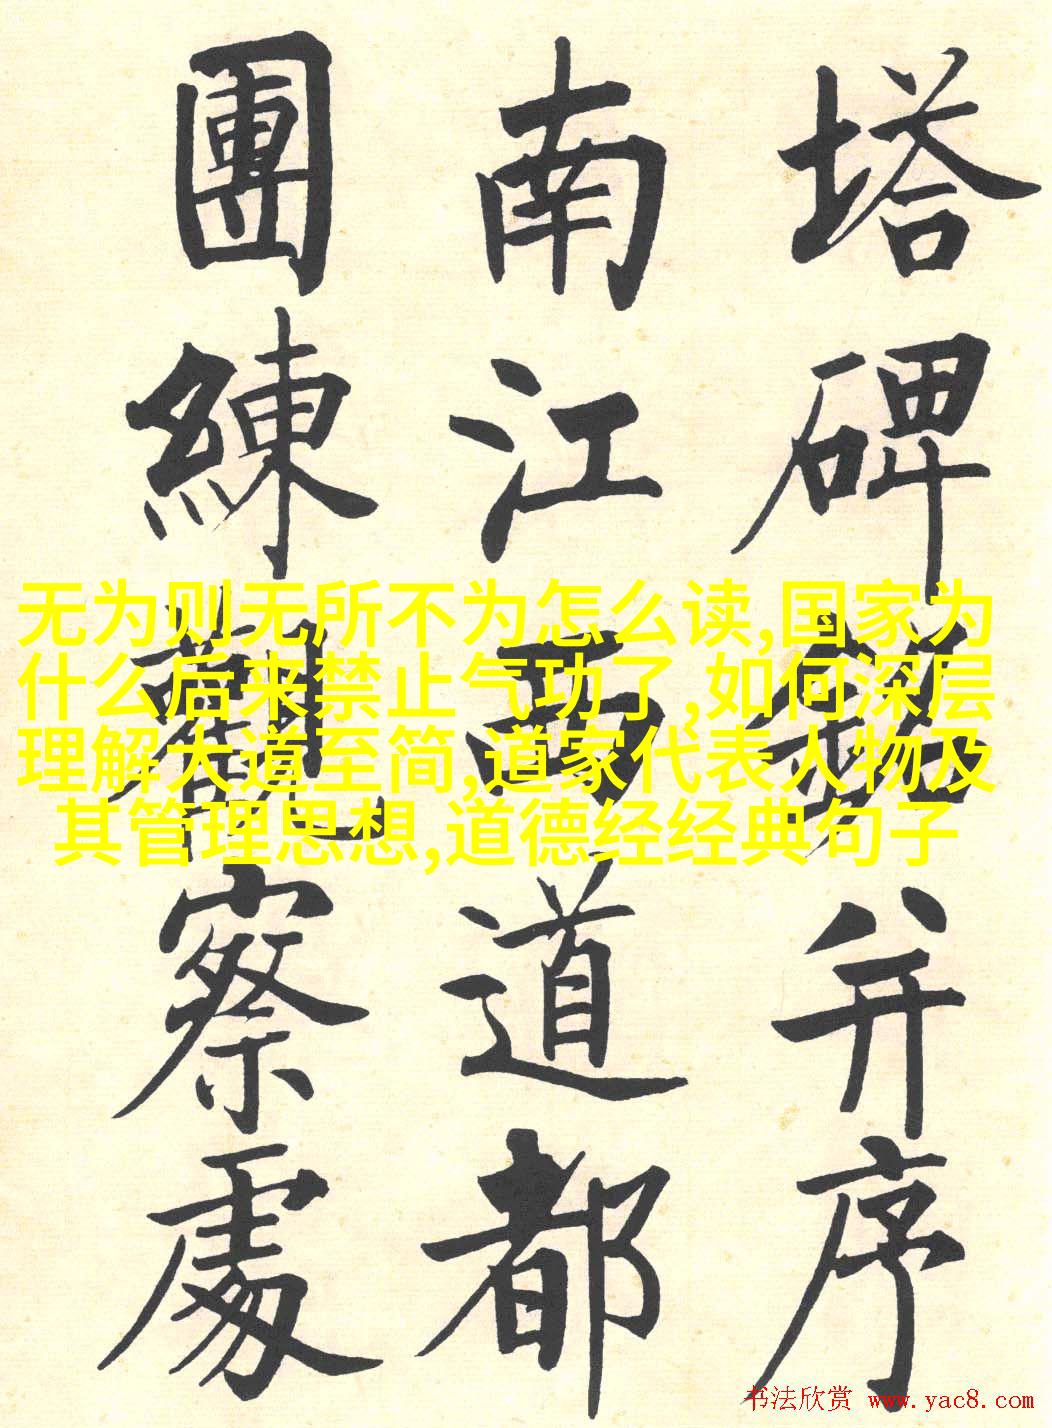 塔碑銘并序
南江西道都
團練觀察處
无为则无所不为怎么读,国家为
什么后来禁止气功了,如何深层
理解大道至简,道家代表人物及
其管理思想,道德经经典句子
书法欣赏 www.yac8.com